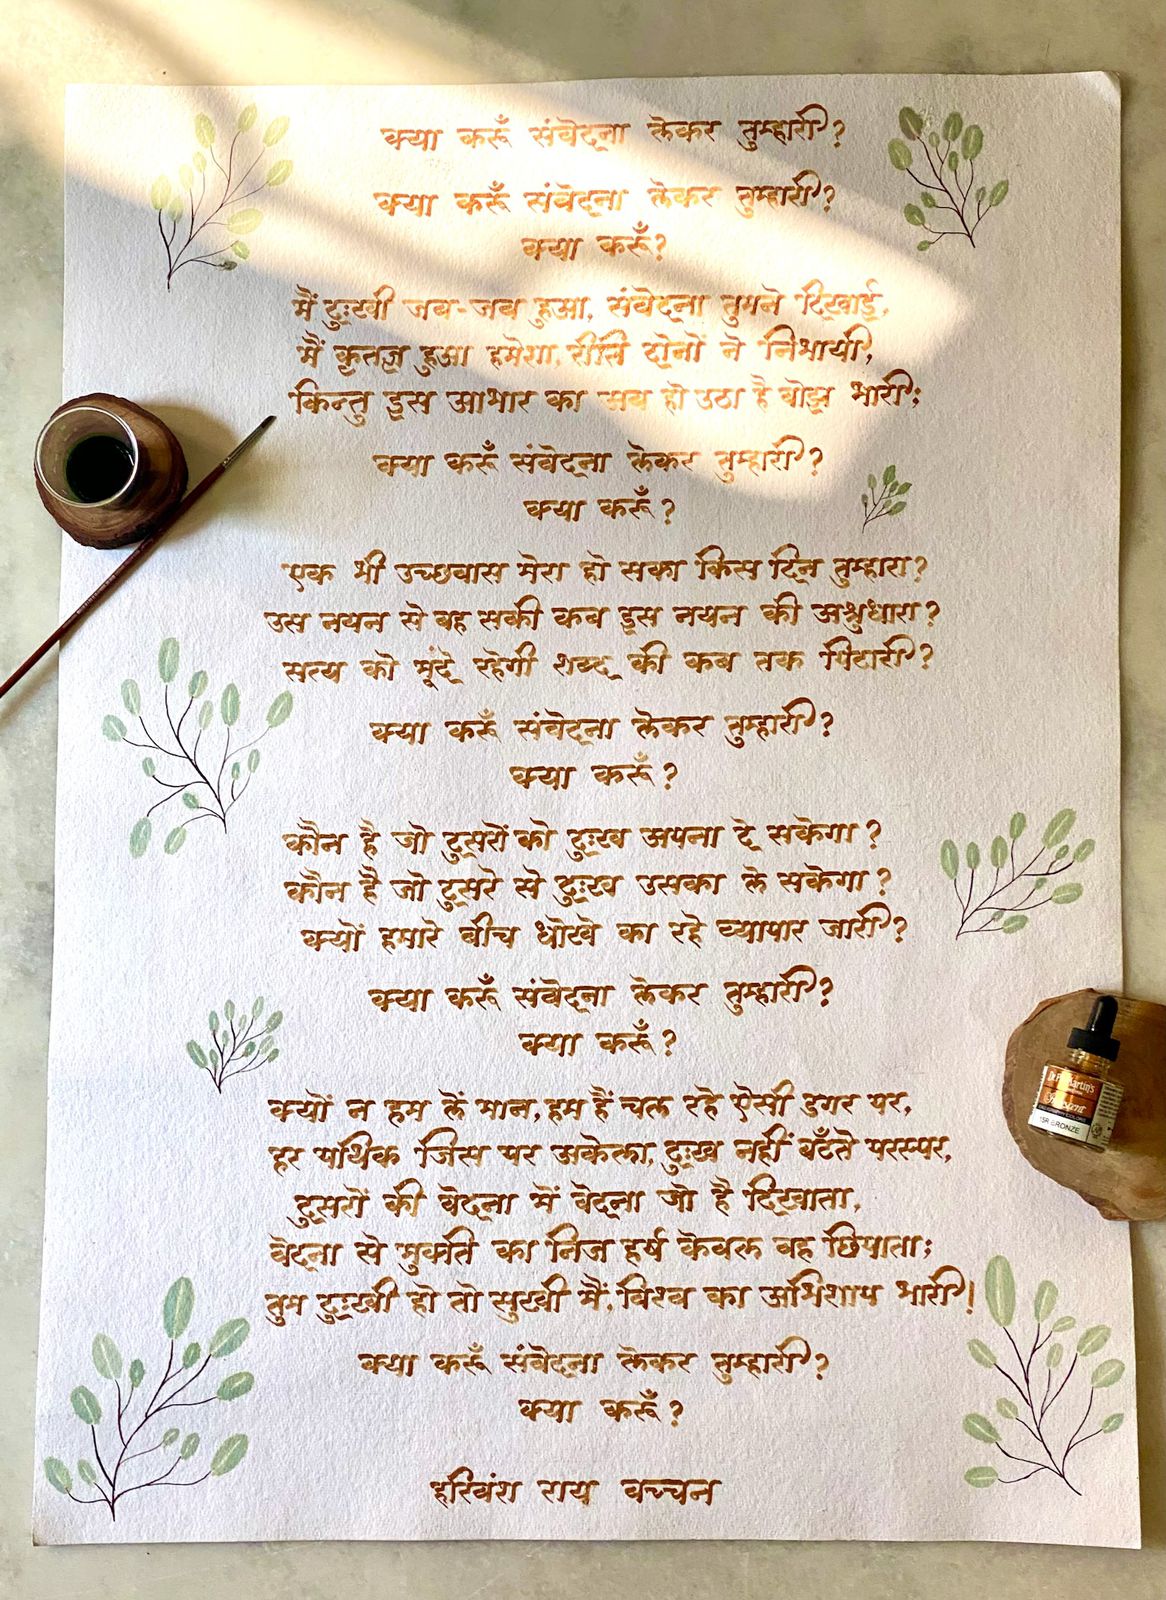 क्या करूँ संवेदना लेकर तुम्हारी?
क्या करूँ संवेदना लेकर तुम्हारी?
क्या करूँ?
मैं दुःखी जब-जब हुआ, संवेदना तुमने दिखाई,
मैं कृतज्ञ हुआ हमेशा, रीति दोनों ने निभायी,
किन्तु इस आभार का अब हो उठा है बोझ भारी;
क्या करूँ संवेदना लेकर तुम्हारी?
क्या करूँ?
एक भी उच्छवास मेरा हो सका किस दिन तुम्हारा?
उस नयन से बह सकी कब इस नयन की अश्रुधारा?
सत्य को मूंदे रहेगी शब्द की कब तक पिटारी?
क्या करूँ संवेदना लेकर तुम्हारी?
क्या करूँ?
कौन है जो दूसरों को दुःख अपना दे सकेगा?
कौन है जो दूसरे से दुःख उसका ले सकेगा?
क्यों हमारे बीच धोखे का रहे व्यापार जारी?
क्या करूँ संवेदना लेकर तुम्हारी?
क्या करूँ?
क्यों न हम लें मान, हम हैं चल रहे ऐसी डगर पर,
हर पथिक जिस पर अकेला, दुःख नहीं बँटते परस्पर,
दूसरों की वेदना में वेदना जो है दिखाता,
वेदना से मुक्ति का निज हर्ष केवल वह छिपाता;
तुम दुःखी हो तो सुखी मैं, विश्व का अभिशाप भारी!
क्या करूँ संवेदना लेकर तुम्हारी?
क्या करूँ?
हरिवंश राय बच्चन
15R BRONZE